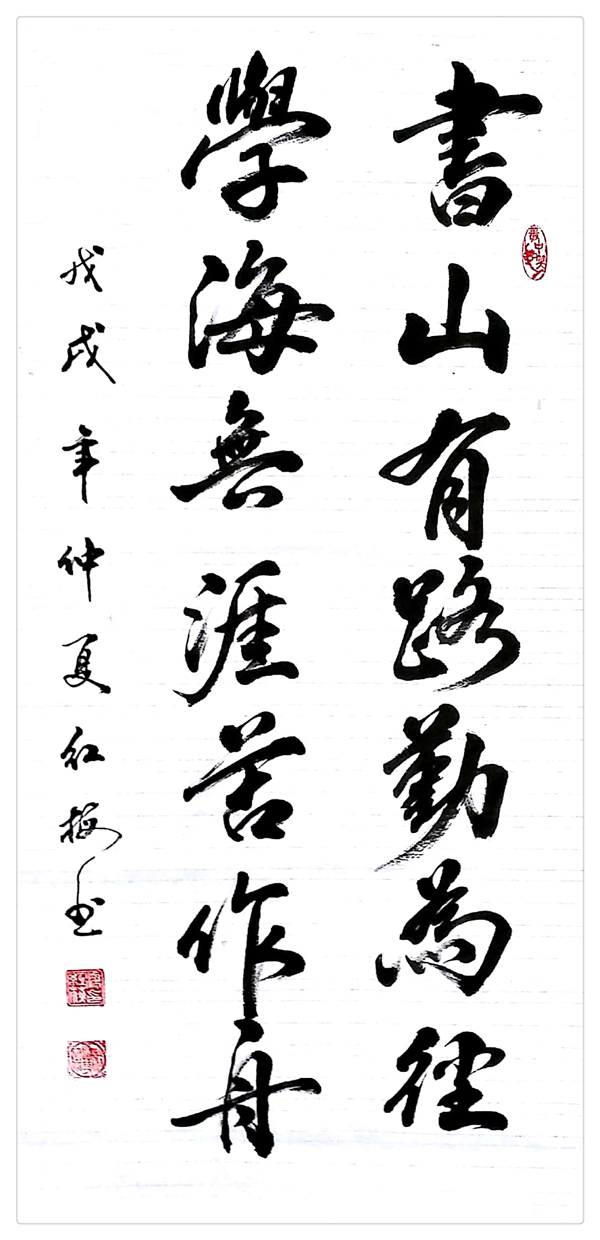 書山有路勤為徑
學海無涯苦作舟
戊戌年仲夏红梅书